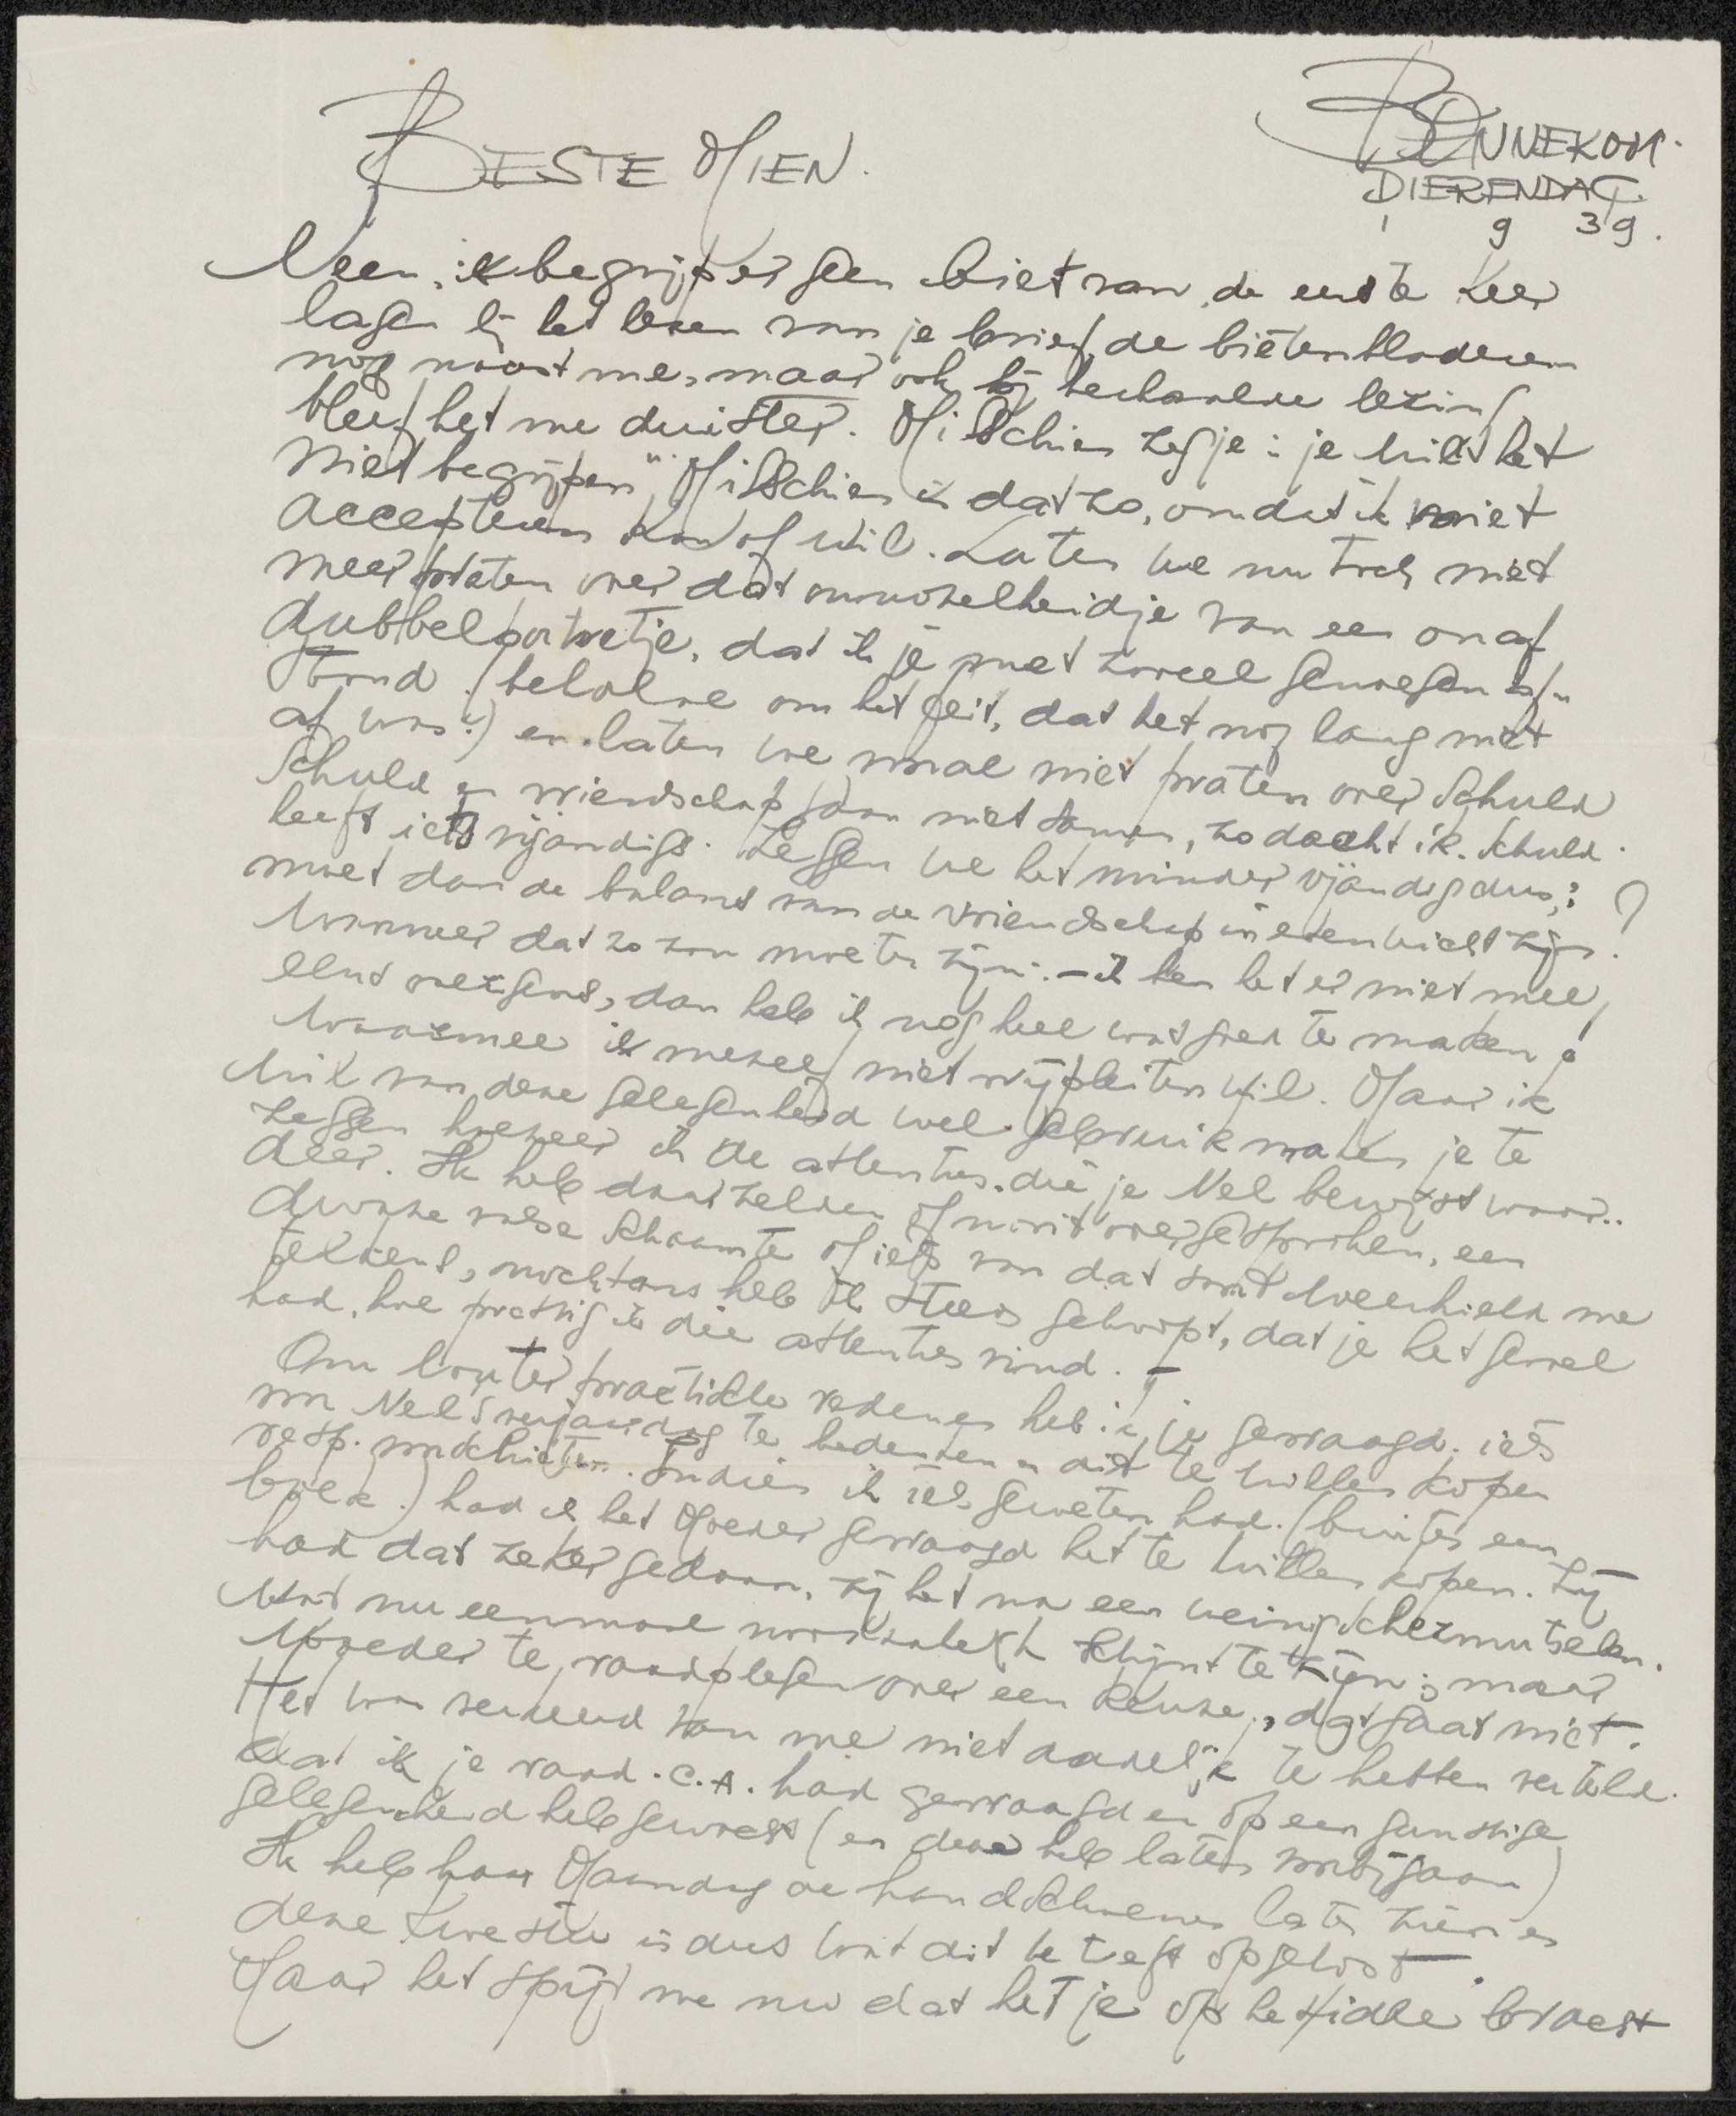 BENNEKOM.
DIERENDAG.
9 39.
BESTE MIEN.
Neen, ik begrijp er geen biet van, de eerste keer
lagen bij het lezen van je brief de bietenbladeren
nog naast me, maar ook bij herhaalde lezing
bleef het me duister. Misschien zeg je: je wilt het
niet begrijpen". Misschien is dat zo, omdat ik niet
accepteren kan of wil. Laten we nu toch niet
meer praten over dat onnozelheidje van een onaf
dubbelportretje, dat ik je met zoveel genoegen af-
stond (behalve om het feit, dat het nog lang niet
af was!) en laten we maar niet praten over schuld
Schuld en vriendschap gaan niet samen, zo dacht ik. Schuld
heeft iets vijandigs. Zeggen we het minder vijandig dus:
moet dan de balans van de vriendschap in evenwicht zijn?
Wanneer dat zo zou moeten zijn: — ik ben het er niet mee
eens overigens, dan heb ik nog heel wat goed te maken!
Waarmee ik mezelf niet vrijpleiten wil. Maar ik
wil van deze gelegenheid wel gebruik maken je te
zeggen hoezeer ik de attenties, die je Nel bewijst waar-
deer. Ik heb daar zelden of nooit over gesproken, een
dwaze valse schaamte of iets van dat soort weerhield me
telkens, nochtans heb ik steeds gehoopt, dat je het gevoel
had, hoe prettig ik die attenties vind. —
Om louter practische redenen heb ik je gevraagd, iets
voor Nel's verjaardag te bedenken en dit te willen kopen
resp. voorschieten. Indien ik iets geweten had. (buiten een
boek.) had ik het Moeder gevraagd het te willen kopen. Zij
had dat zeker gedaan, zij het na een weinig schermutselen.
Wat nu eenmaal noodzakelijk schijnt te zijn; maar
Moeder te raadplegen over een keuze, dat gaat niet.
Het was verkeerd van me niet dadelijk te hebben verteld.
dat ik je raad. c.a. had gevraagd en op een gunstige
gelegenheid heb gewacht (en deze heb laten voorbijgaan)
Ik heb haar Maandag de handschoenen laten zien en
deze kwestie is dus wat dit betreft opgelost.
Maar het spijt me nu dat het je op het idee bracht